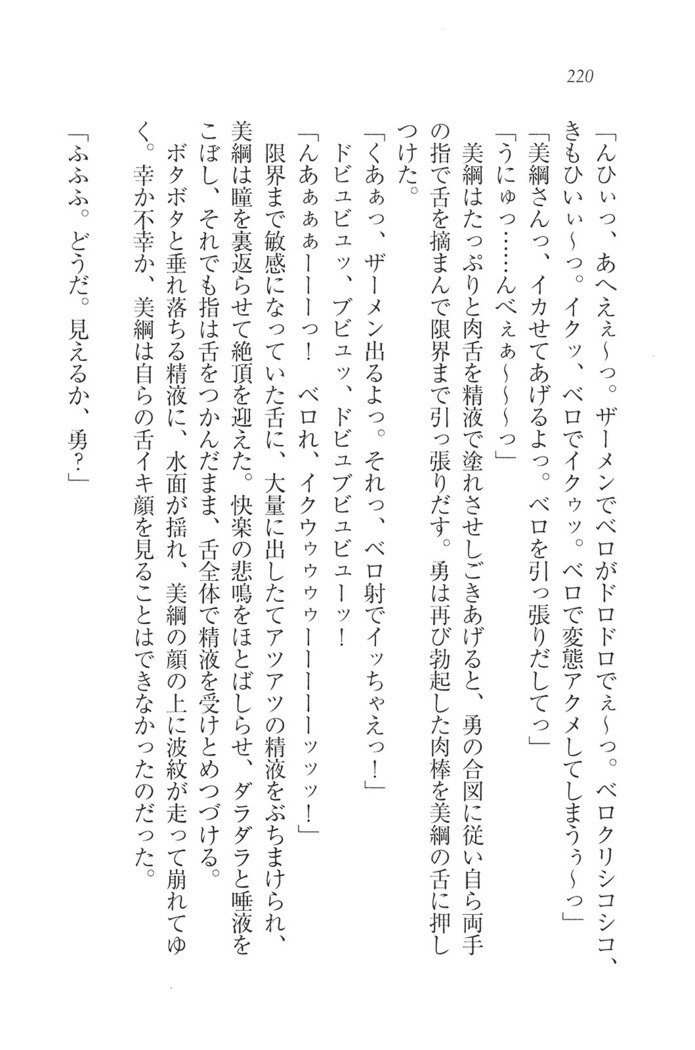 220
「んひぃっ、あへえぇ～っ。ザーメンでベロがドロドロでぇ～っ。ベロクリシコシコ、
きもひいぃ～っ。イクッ、ベロでイクゥッ。ベロで変態アクメしてしまうぅ～っ」
「美綱さんっ、イカせてあげるよっ。ベロを引っ張りだしてっ」
「うにゅっ……んべぇぁ～～～っ」
美綱はたっぷりと肉舌を精液で塗れさせしごきあげると、勇の合図に従い自ら両手
の指で舌を摘まんで限界まで引っ張りだす。勇は再び勃起した肉棒を美綱の舌に押し
つけた。
「くあぁっ、ザーメン出るよっ。それっ、ベロ射でイッちゃえっ！」
ドビュビュッ、ブビュッ、ドビュブビュビューッ！
「んあぁぁぁーーーっ！　ベロれ、イクウゥゥゥゥーーーーーッッッ！」
限界まで敏感になっていた舌に、大量に出したてアツアツの精液をぶちまけられ、
美綱は瞳を裏返らせて絶頂を迎えた。快楽の悲鳴をほとばしらせ、ダラダラと唾液を
こぼし、それでも指は舌をつかんだまま、舌全体で精液を受けとめつづける。
ボタボタと垂れ落ちる精液に、水面が揺れ、美綱の顔の上に波紋が走って崩れてゆ
く。幸か不幸か、美綱は自らの舌イキ顔を見ることはできなかったのだった。
「ふふふ。どうだ。見えるか、勇？」